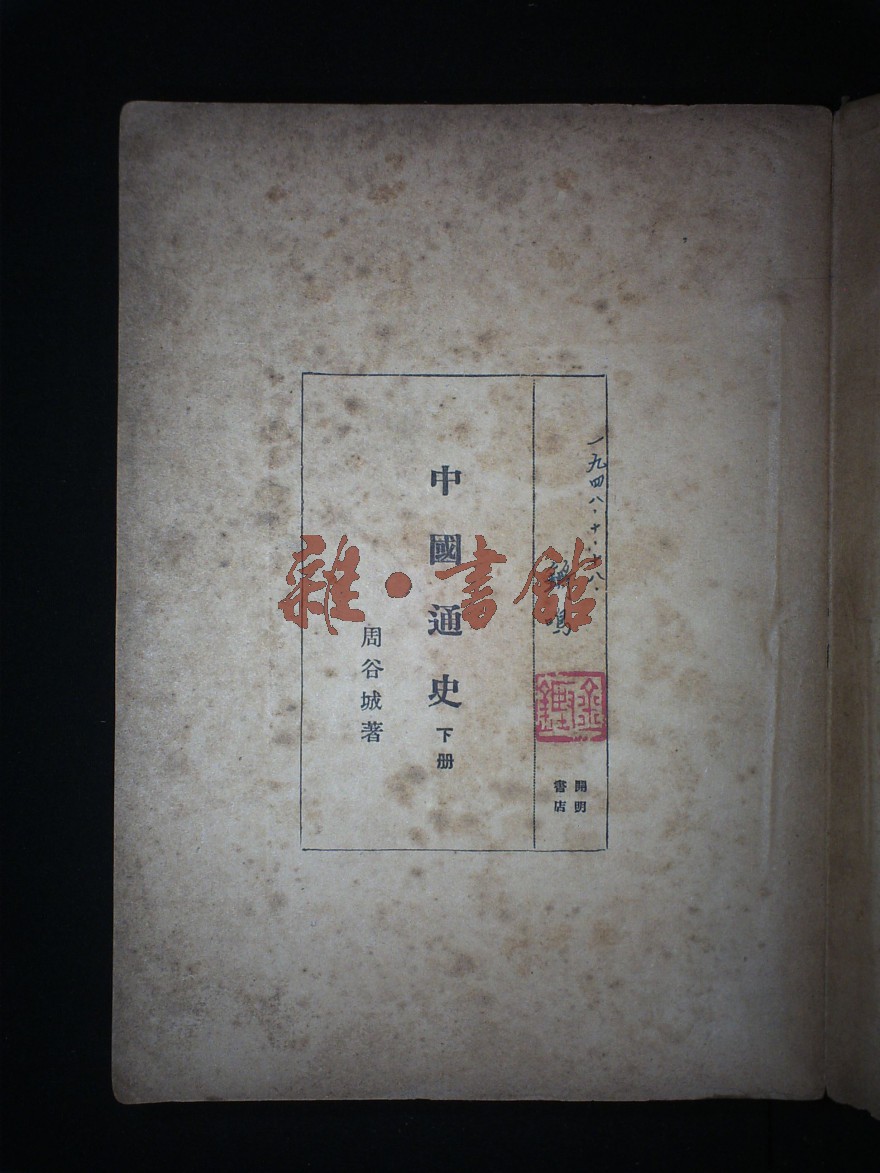 一九四八·十·十八·
鳴
開明
書店
中國通史 下册
周谷城著
雜·書館